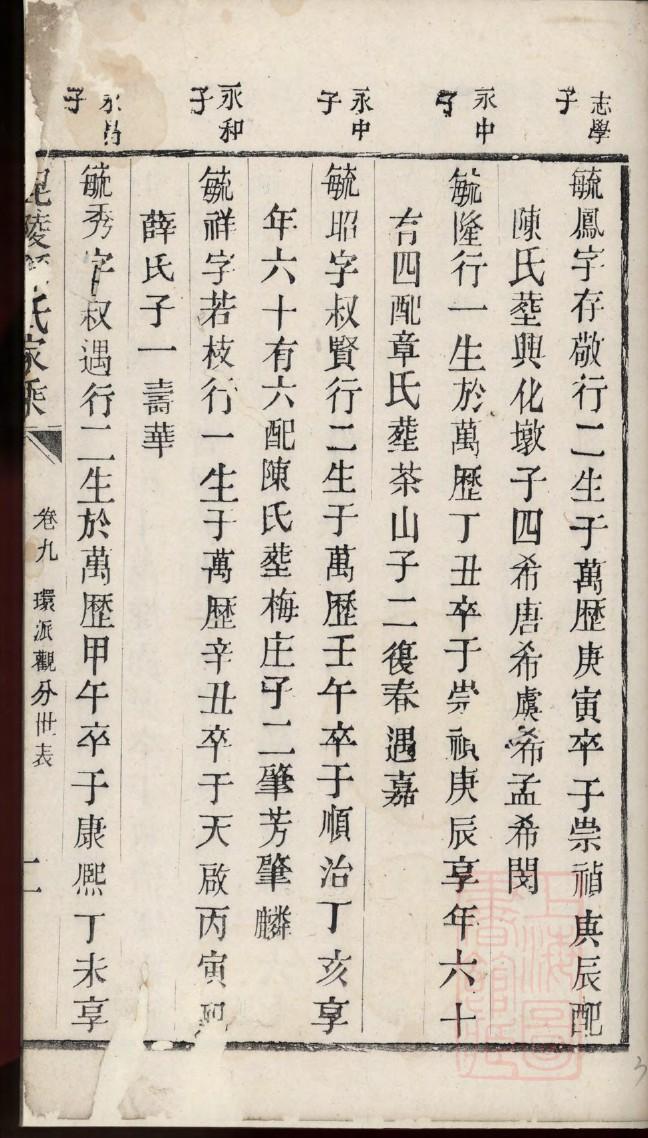 志學子
毓鳳字存敬行二生于萬歷庚寅卒于崇禎庚辰配
陳氏塟興化墩子四希唐希虞希孟希閔
永中子
毓隆行一生於萬歷丁丑卒于崇禎庚辰享年六十
有四配章氏塟茶山子二復春遇嘉
永中子
毓昭字叔賢行二生于萬歷壬午卒于順治丁亥享
年六十有六配陳氏塟梅庄子二肇芳肇麟
永和子
毓祥字若枝行一生于萬歷辛丑卒于天啟丙寅配
薛氏子一壽華
永 子
毓秀字叔遇行二生於萬歷甲午卒于康熙丁未享
毘陵 氏家乘
卷九 環派觀分世表
二
上海圖書館藏